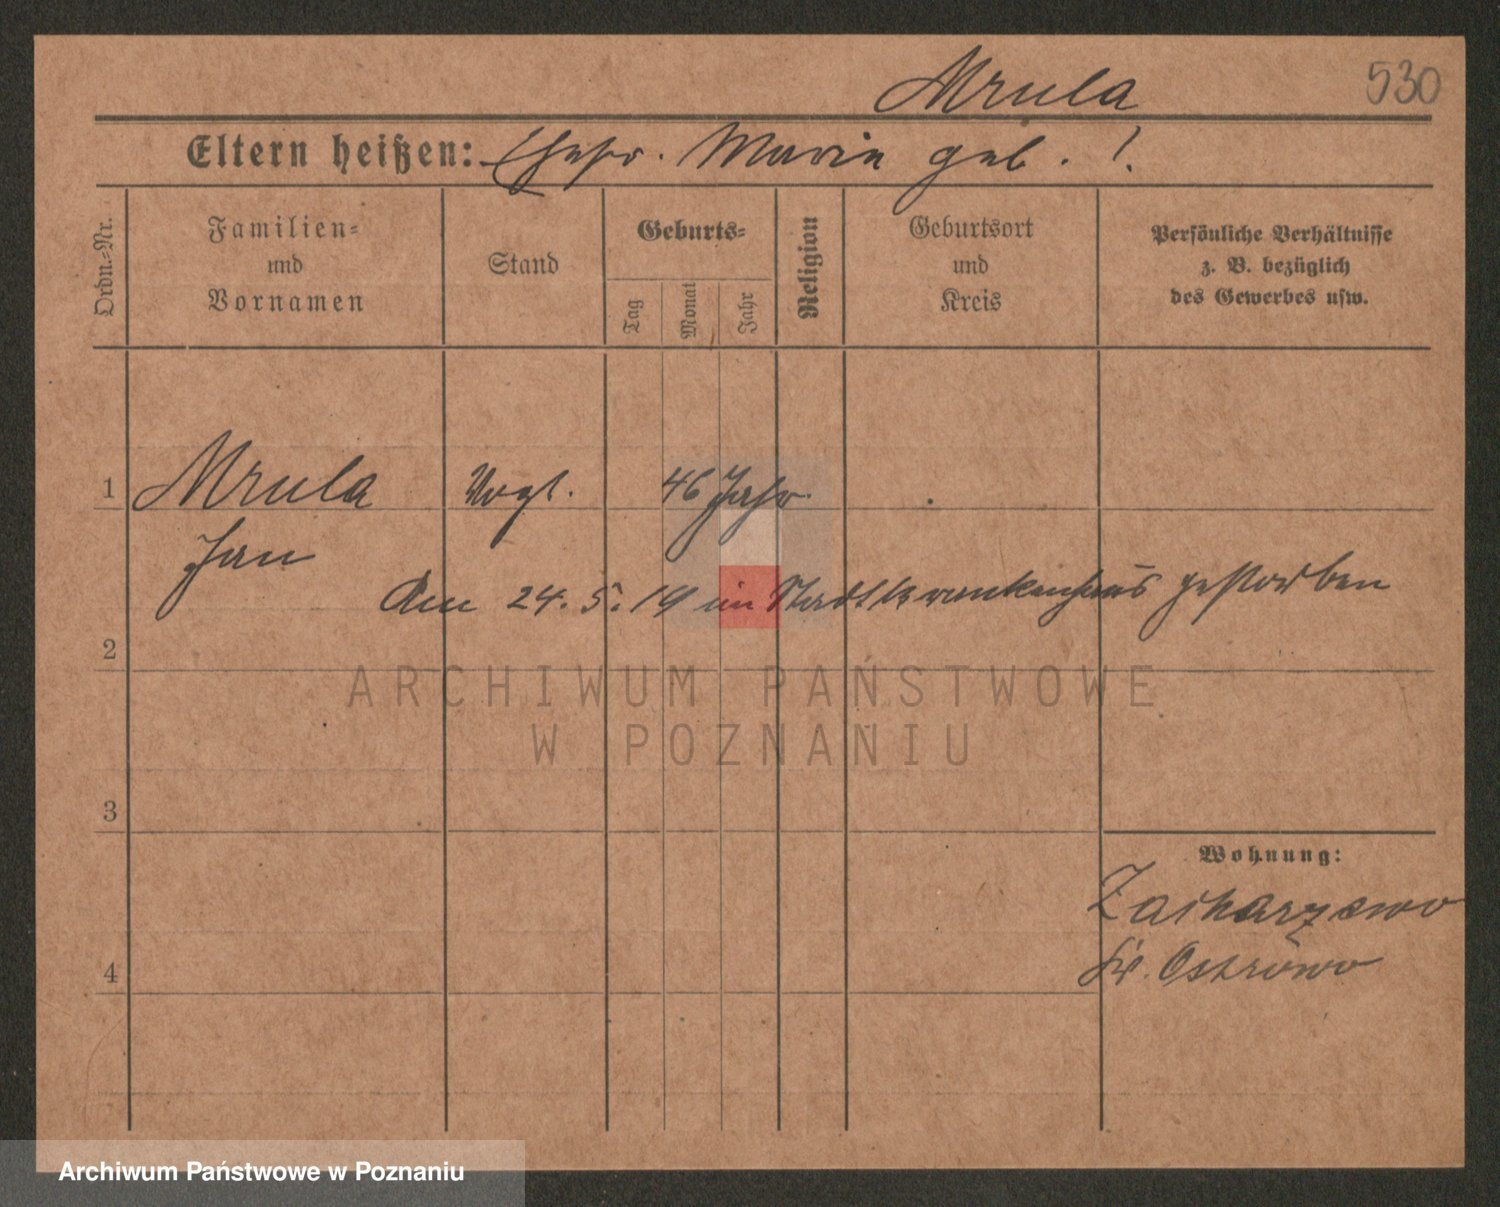 Mrula
530
Eltern heißen: Ehefr. Marie geb. !.
Ordn.-Nr.
Familien-
und
Vornamen
Stand
Geburts-
Tag
Monat
Jahr
Religion
Geburtsort
und
Kreis
Persönliche Verhältnisse
z. B. bezüglich
des Gewerbes usw.
1 Mrula Vogt. 46 Jahr.
Jan
Am 24. 5. 19 im Stadtkrankenhaus gestorben
2
ARCHIWUM PAŃSTWOWE
W POZNANIU
3
Wohnung:
Zacharzewo
Kr. Ostrowo
4
Archiwum Państwowe w Poznaniu